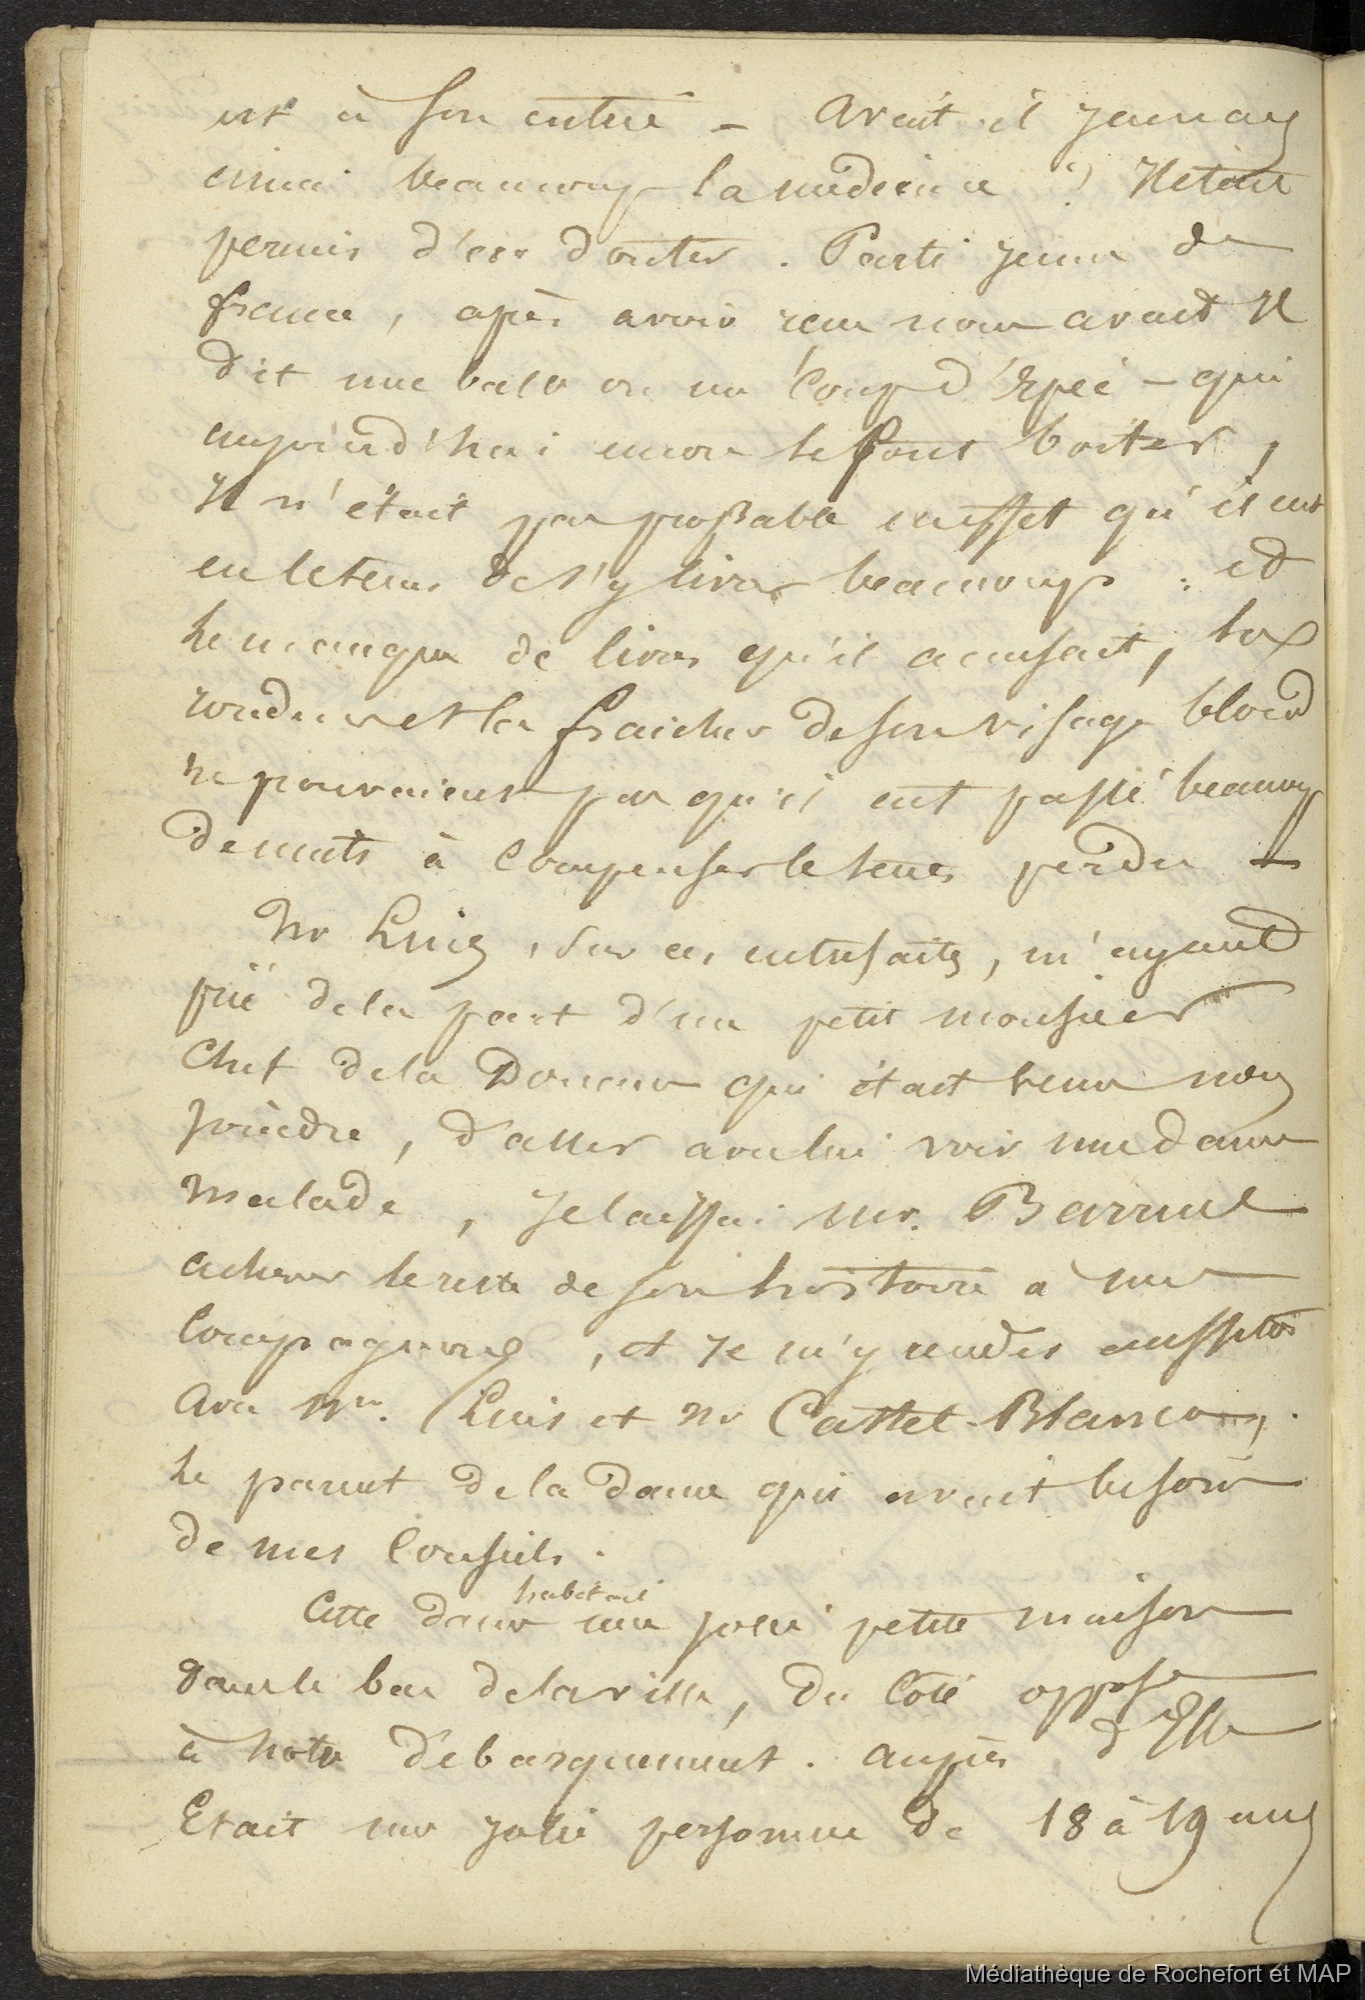 est à son entrée – avait il jamais
aimé beaucoup la médecine ? Il était
permis d'en douter. Parti jeune de
france, après avoir recu nous avait Il
dit une balle ou un coup d'Epée – qui
aujourd'hui encore le font boiter,
Il n'était pas probable en effet qu'il eut
eu le tems de s'y livrer beaucoup : et
le manque de livres qu'il accusait, la
rondeur et la fraicheur de son visage blond
ne prouvaient pas qu'il eut passé beaucoup
de nuits à compenser le tems perdu –
Mr Luis, sur ces entrefaites, m'ayant
prié de la part d'un petit monsieur
Chef de la Douane qui était venu nous
joindre, d'aller avec lui voir une dame
malade, je laissai mr. Barruel
achever le reste de son histoire à mes
compagnons, et je m'y rendis aussitôt
avec Mr. Luis et Mr Castel-Blanco,
le parent de la dame qui avait besoin
de mes conseils.
habitait
Cette dame une jolie petite maison
dans le bas de la ville, du côté opposé
à notre débarquement. auprès d'Elle
Etait une jolie personne de 18 à 19 ans
Médiathèque de Rochefort et MAP